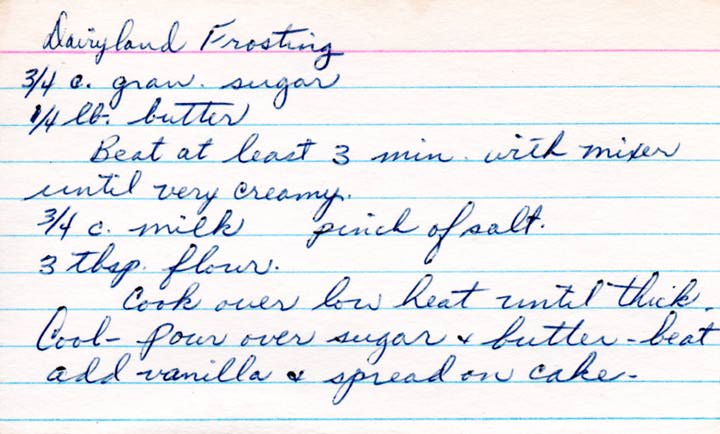 Dairyland Frosting
3/4 c. gran. sugar
1/4 lb. butter
Beat at least 3 min. with mixer
until very creamy.
3/4 c. milk pinch of salt.
3 tbsp. flour.
Cook over low heat until thick.
Cool - pour over sugar & butter - beat
add vanilla & spread on cake -